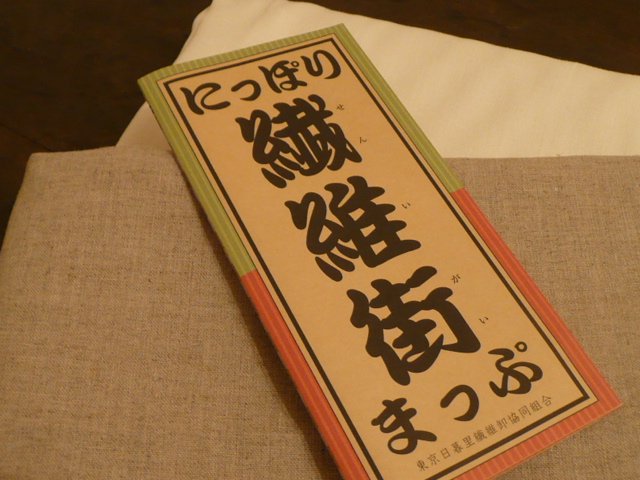 にっぽり
繊維街
せんいがい
まっぷ
東京日暮里繊維卸協同組合